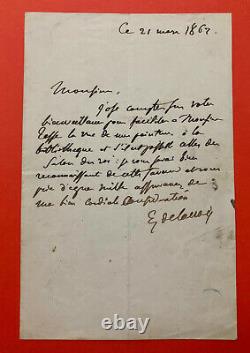 Ce 21 mars 1862.
Monsieur,
J'ose compter sur votre
bienveillance pour faciliter à Monsieur
la vue de mes peintures à la
bibliothèque et s'il est possible celles du
Salon du roi : je vous serai bien
reconnaissant de cette faveur et vous
prie d'agréer mille assurances de
ma bien cordiale considération
Eug Delacroix
© picture-worth.com